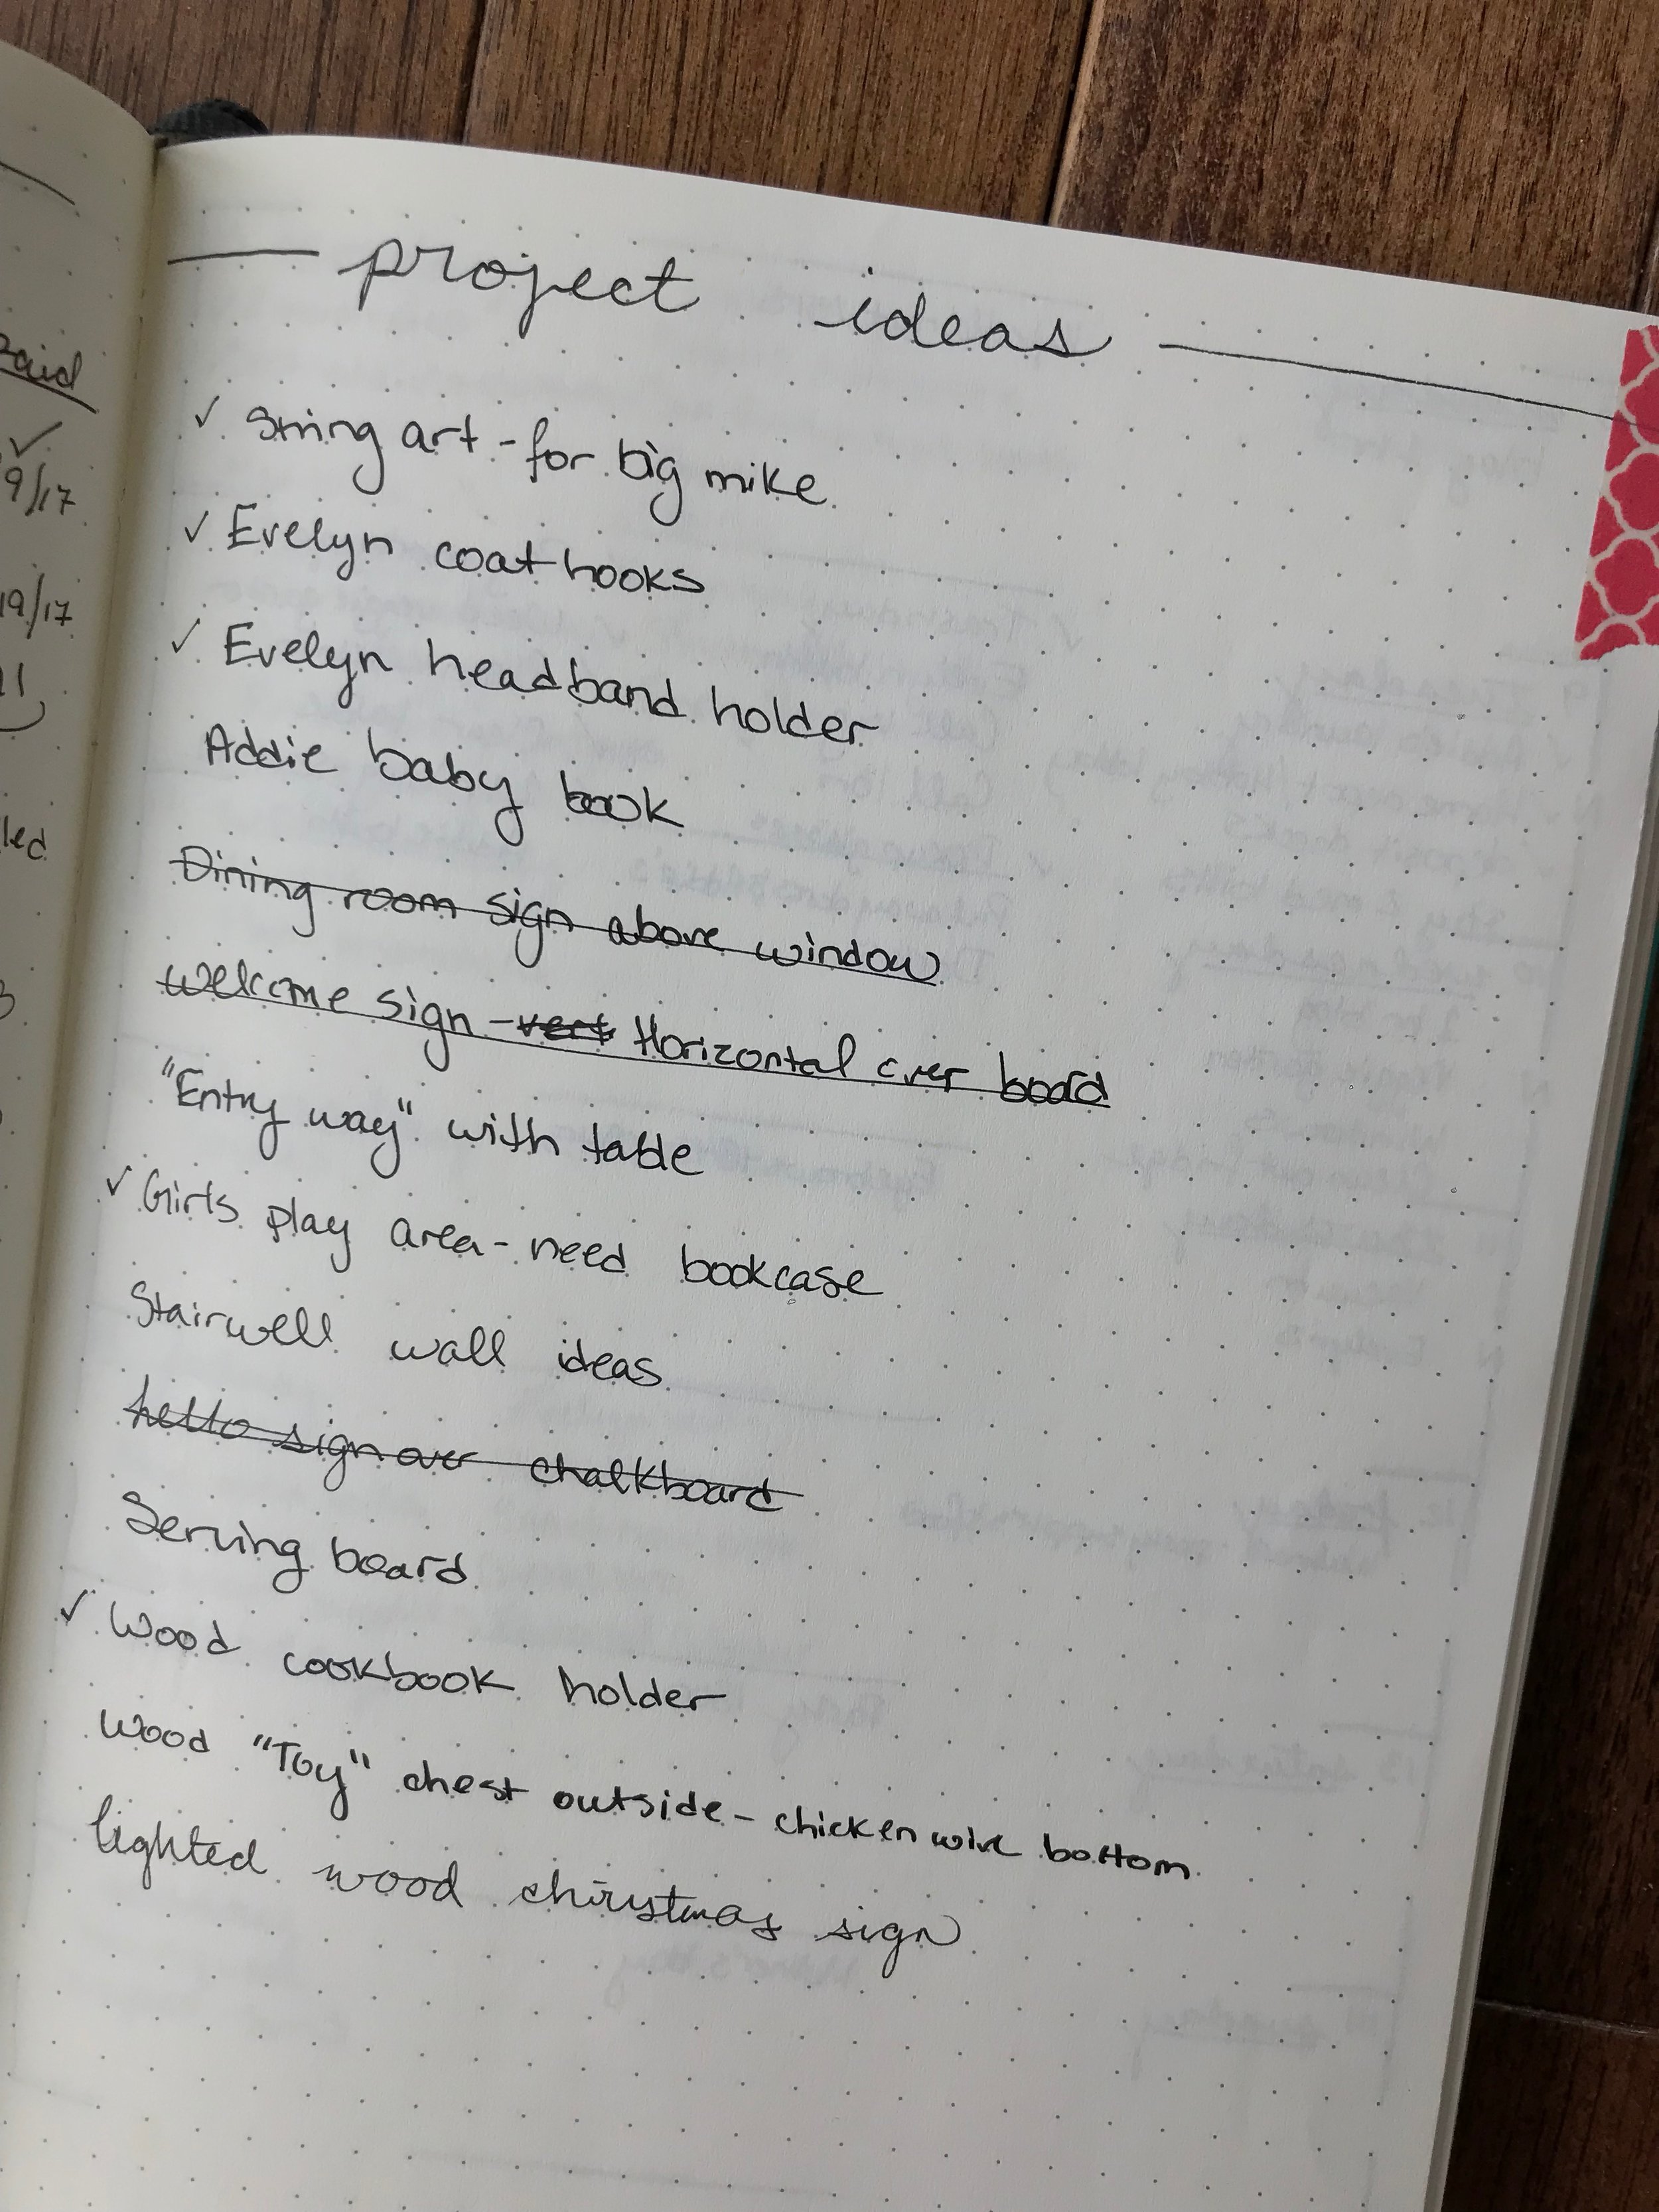 paid
✓
9/17
19/17
11
led
3
project ideas
✓ String art - for big mike
✓ Evelyn coat hooks
✓ Evelyn headband holder
Addie baby book
Dining room sign above window
welcome sign - vert Horizontal over board
"Entry way" with table
✓ Girls play area - need bookcase
Stairwell wall ideas
hello sign over chalkboard
Serving board
✓ Wood cookbook holder
Wood "Toy" chest outside - chicken wire bottom
lighted wood chirstmas sign